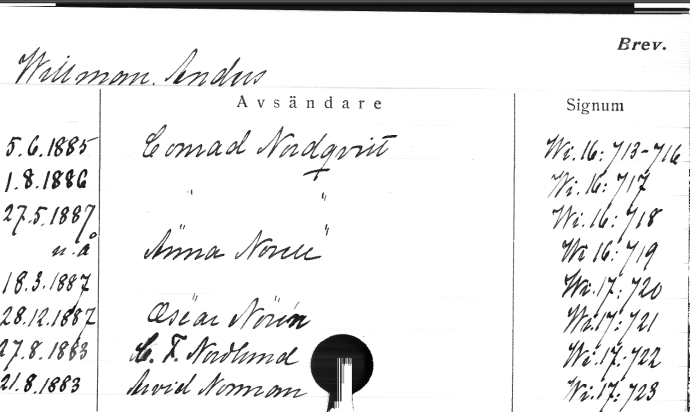 Brev.
Willman. Anders
Avsändare Signum
5.6.1885 Conrad Nordqvist Wi. 16: 713-716
1.8.1886 " " Wi. 16: 717
27.5.1887 " " Wi. 16: 718
u. å Anna Norrie Wi 16: 719
18.3.1887 Wi. 17: 720
28.12.1887 Oscar Norén Wi. 17: 721
27.8.1883 C. F. Nordlund Wi. 17: 722
21.8.1883 Arvid Norman Wi. 17: 723